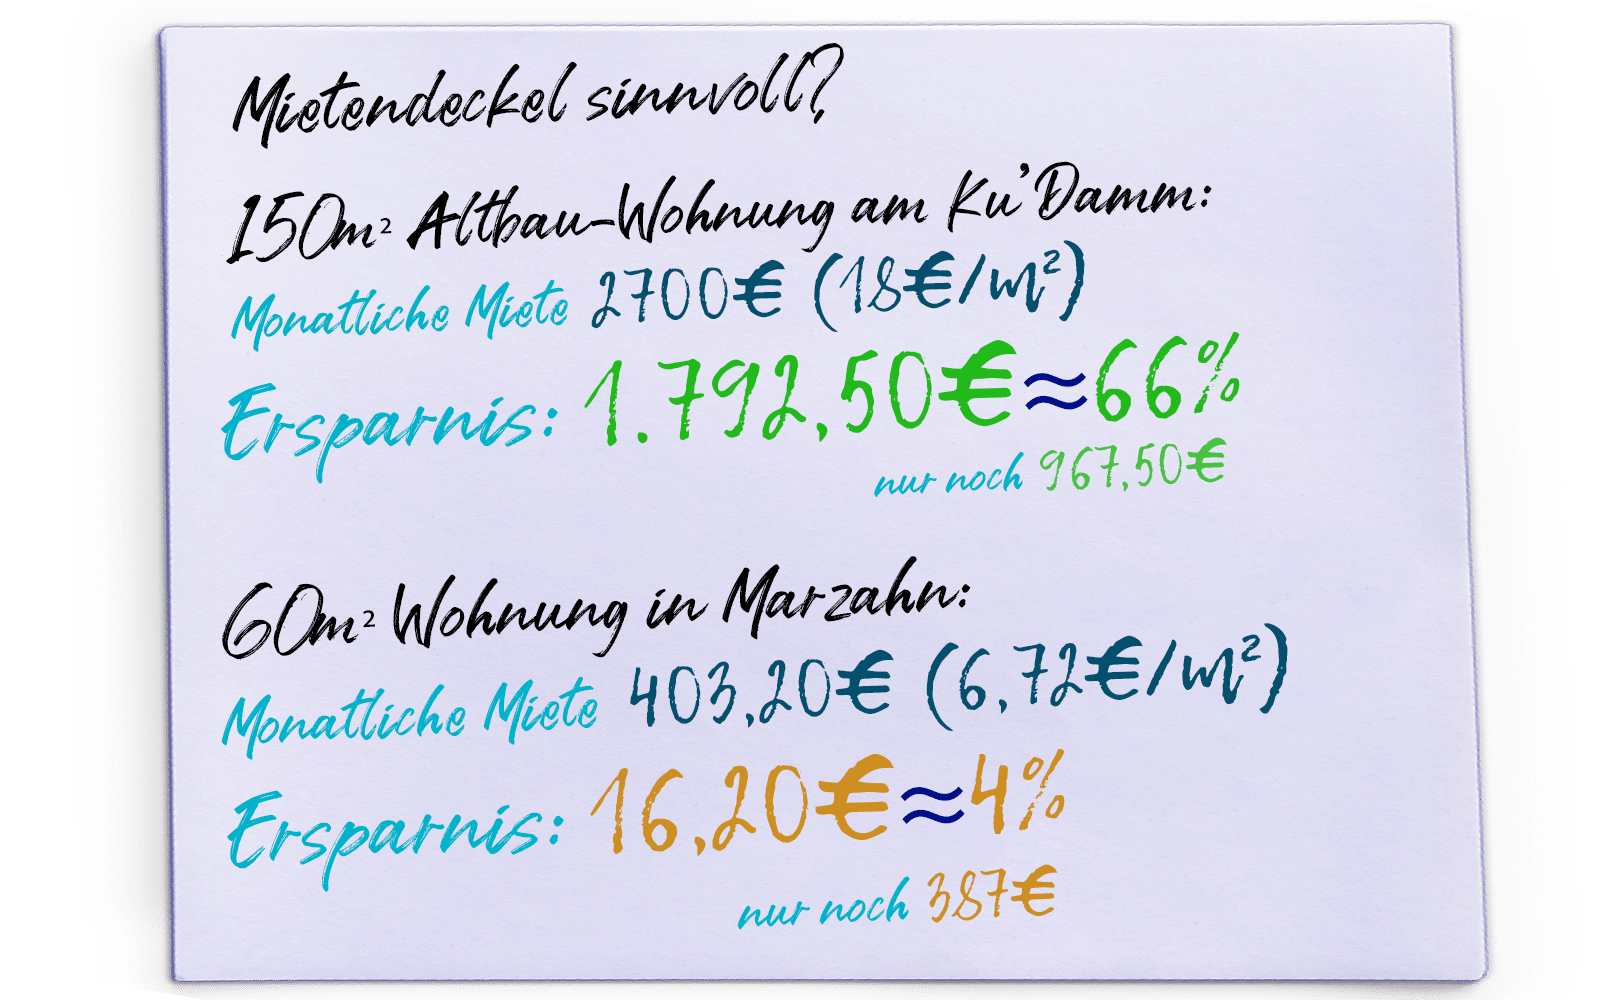 Mietendeckel sinnvoll?
150m² Altbau-Wohnung am Ku'Damm:
Monatliche Miete 2700€ (18€/m²)
Ersparnis: 1.792,50€≈66%
nur noch 967,50€
60m² Wohnung in Marzahn:
Monatliche Miete 403,20€ (6,72€/m²)
Ersparnis: 16,20€≈4%
nur noch 387€